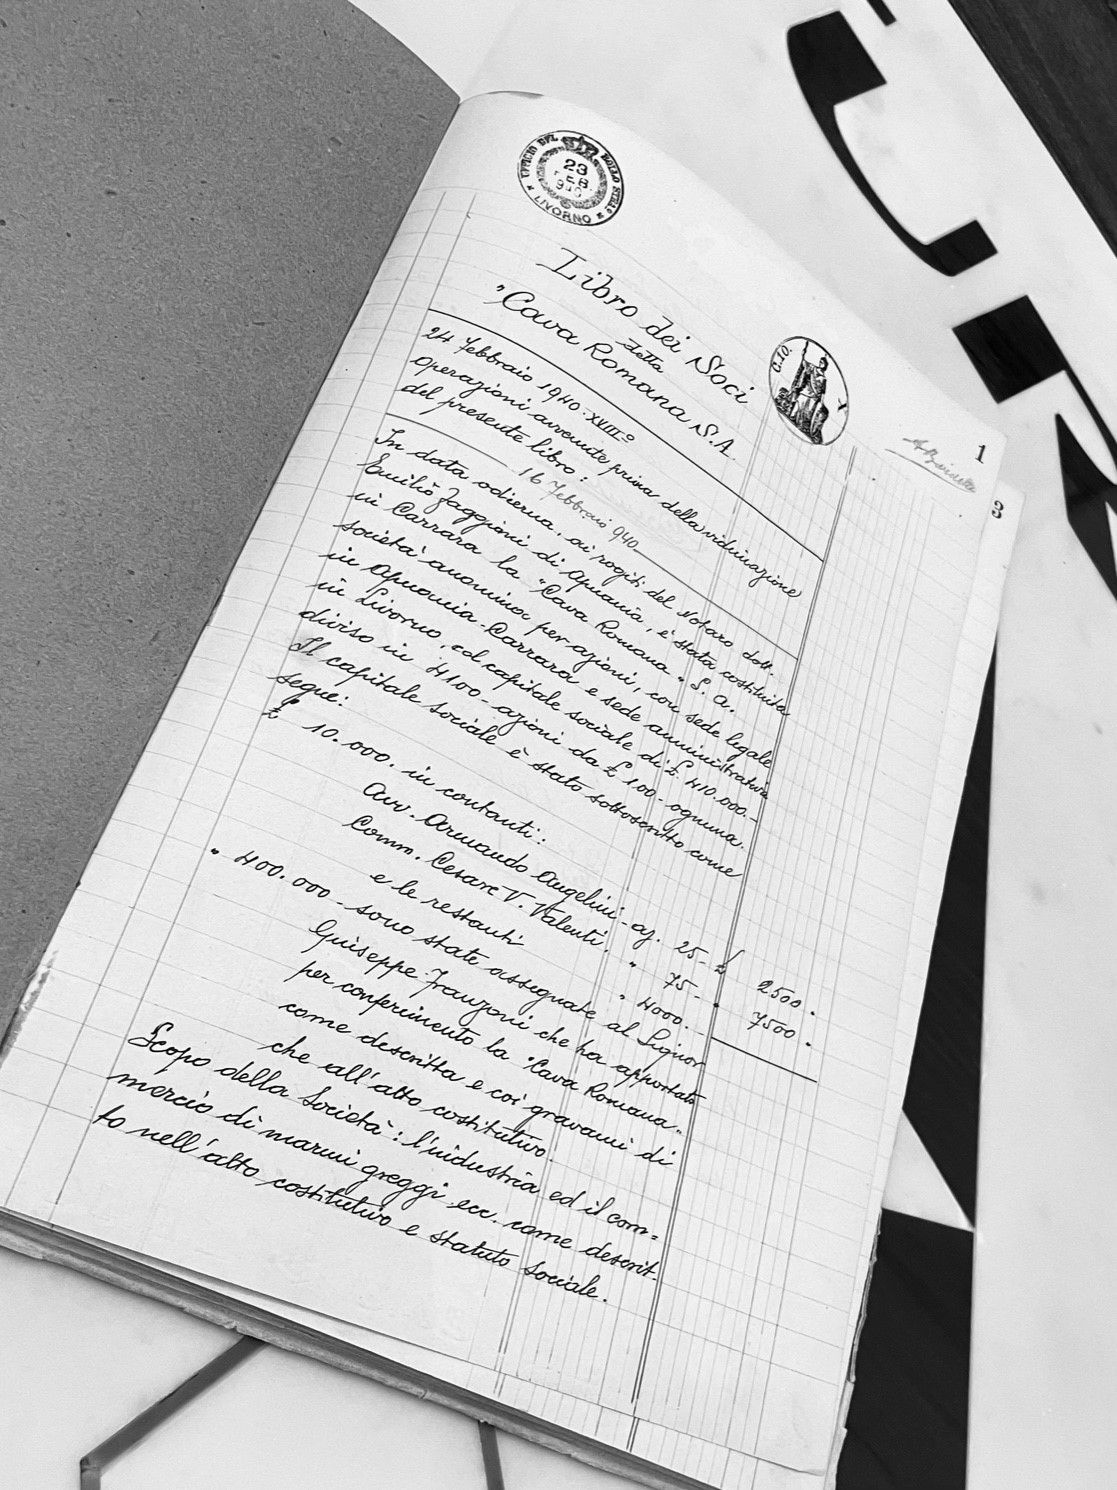 UFFICIO DEL BOLLO STRAO
23
FEB
940
LIVORNO
Libro dei Soci
della
"Cava Romana S.A.
C.10.
1
3
24 Febbraio 1940-XVIII°
Operazioni avvenute prima della vidimazione
del presente libro:
16 Febbraio 940
In data odierna, ai rogiti del Notaro dott.
Emilio Faggioni di Apuania, è stata costituita
in Carrara la "Cava Romana" S. A.
società anonima per azioni, con sede legale
in Apuania-Carrara e sede amministrativa
in Livorno, col capitale sociale di £. 410.000.-
diviso in 4100- azioni da £ 100- ognuna.
Il capitale sociale è stato sottoscritto come
segue:
£ 10.000. in contanti:
Avv. Armando Angelini - az. 25 - £ 2500.
Comm. Cesare V. Valenti. " 75 - " 7500.
e le restanti " 4000. -
" 400.000 - sono state assegnate al Signor
Giuseppe Franzoni che ha apportato
per conferimento la "Cava Romana"
come descritta e coi gravami di
che all'atto costitutivo.
Scopo della Società: l'industria ed il com=
mercio di marmi greggi ecc. come descrit-
to nell'atto costitutivo e statuto sociale.